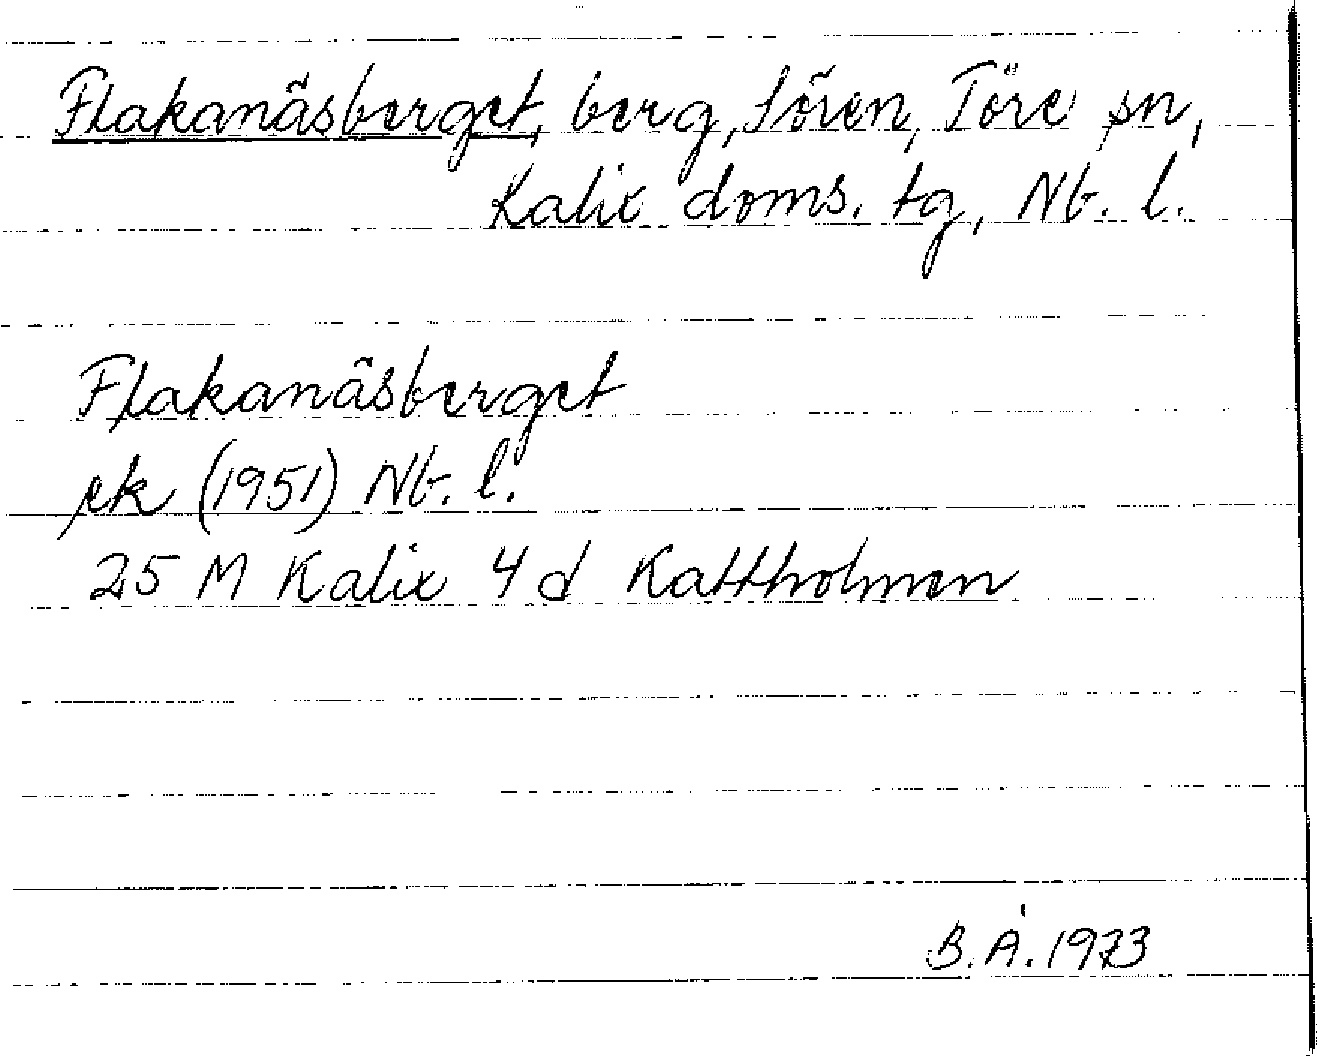 Flakanäsberget, berg, Sören, Töre sn,
Kalix doms. tg, Nb. l.
Flakanäsberget
ek (1951) Nb. l.
25 M Kalix 4 d Kattholmen
B. Å. 1973